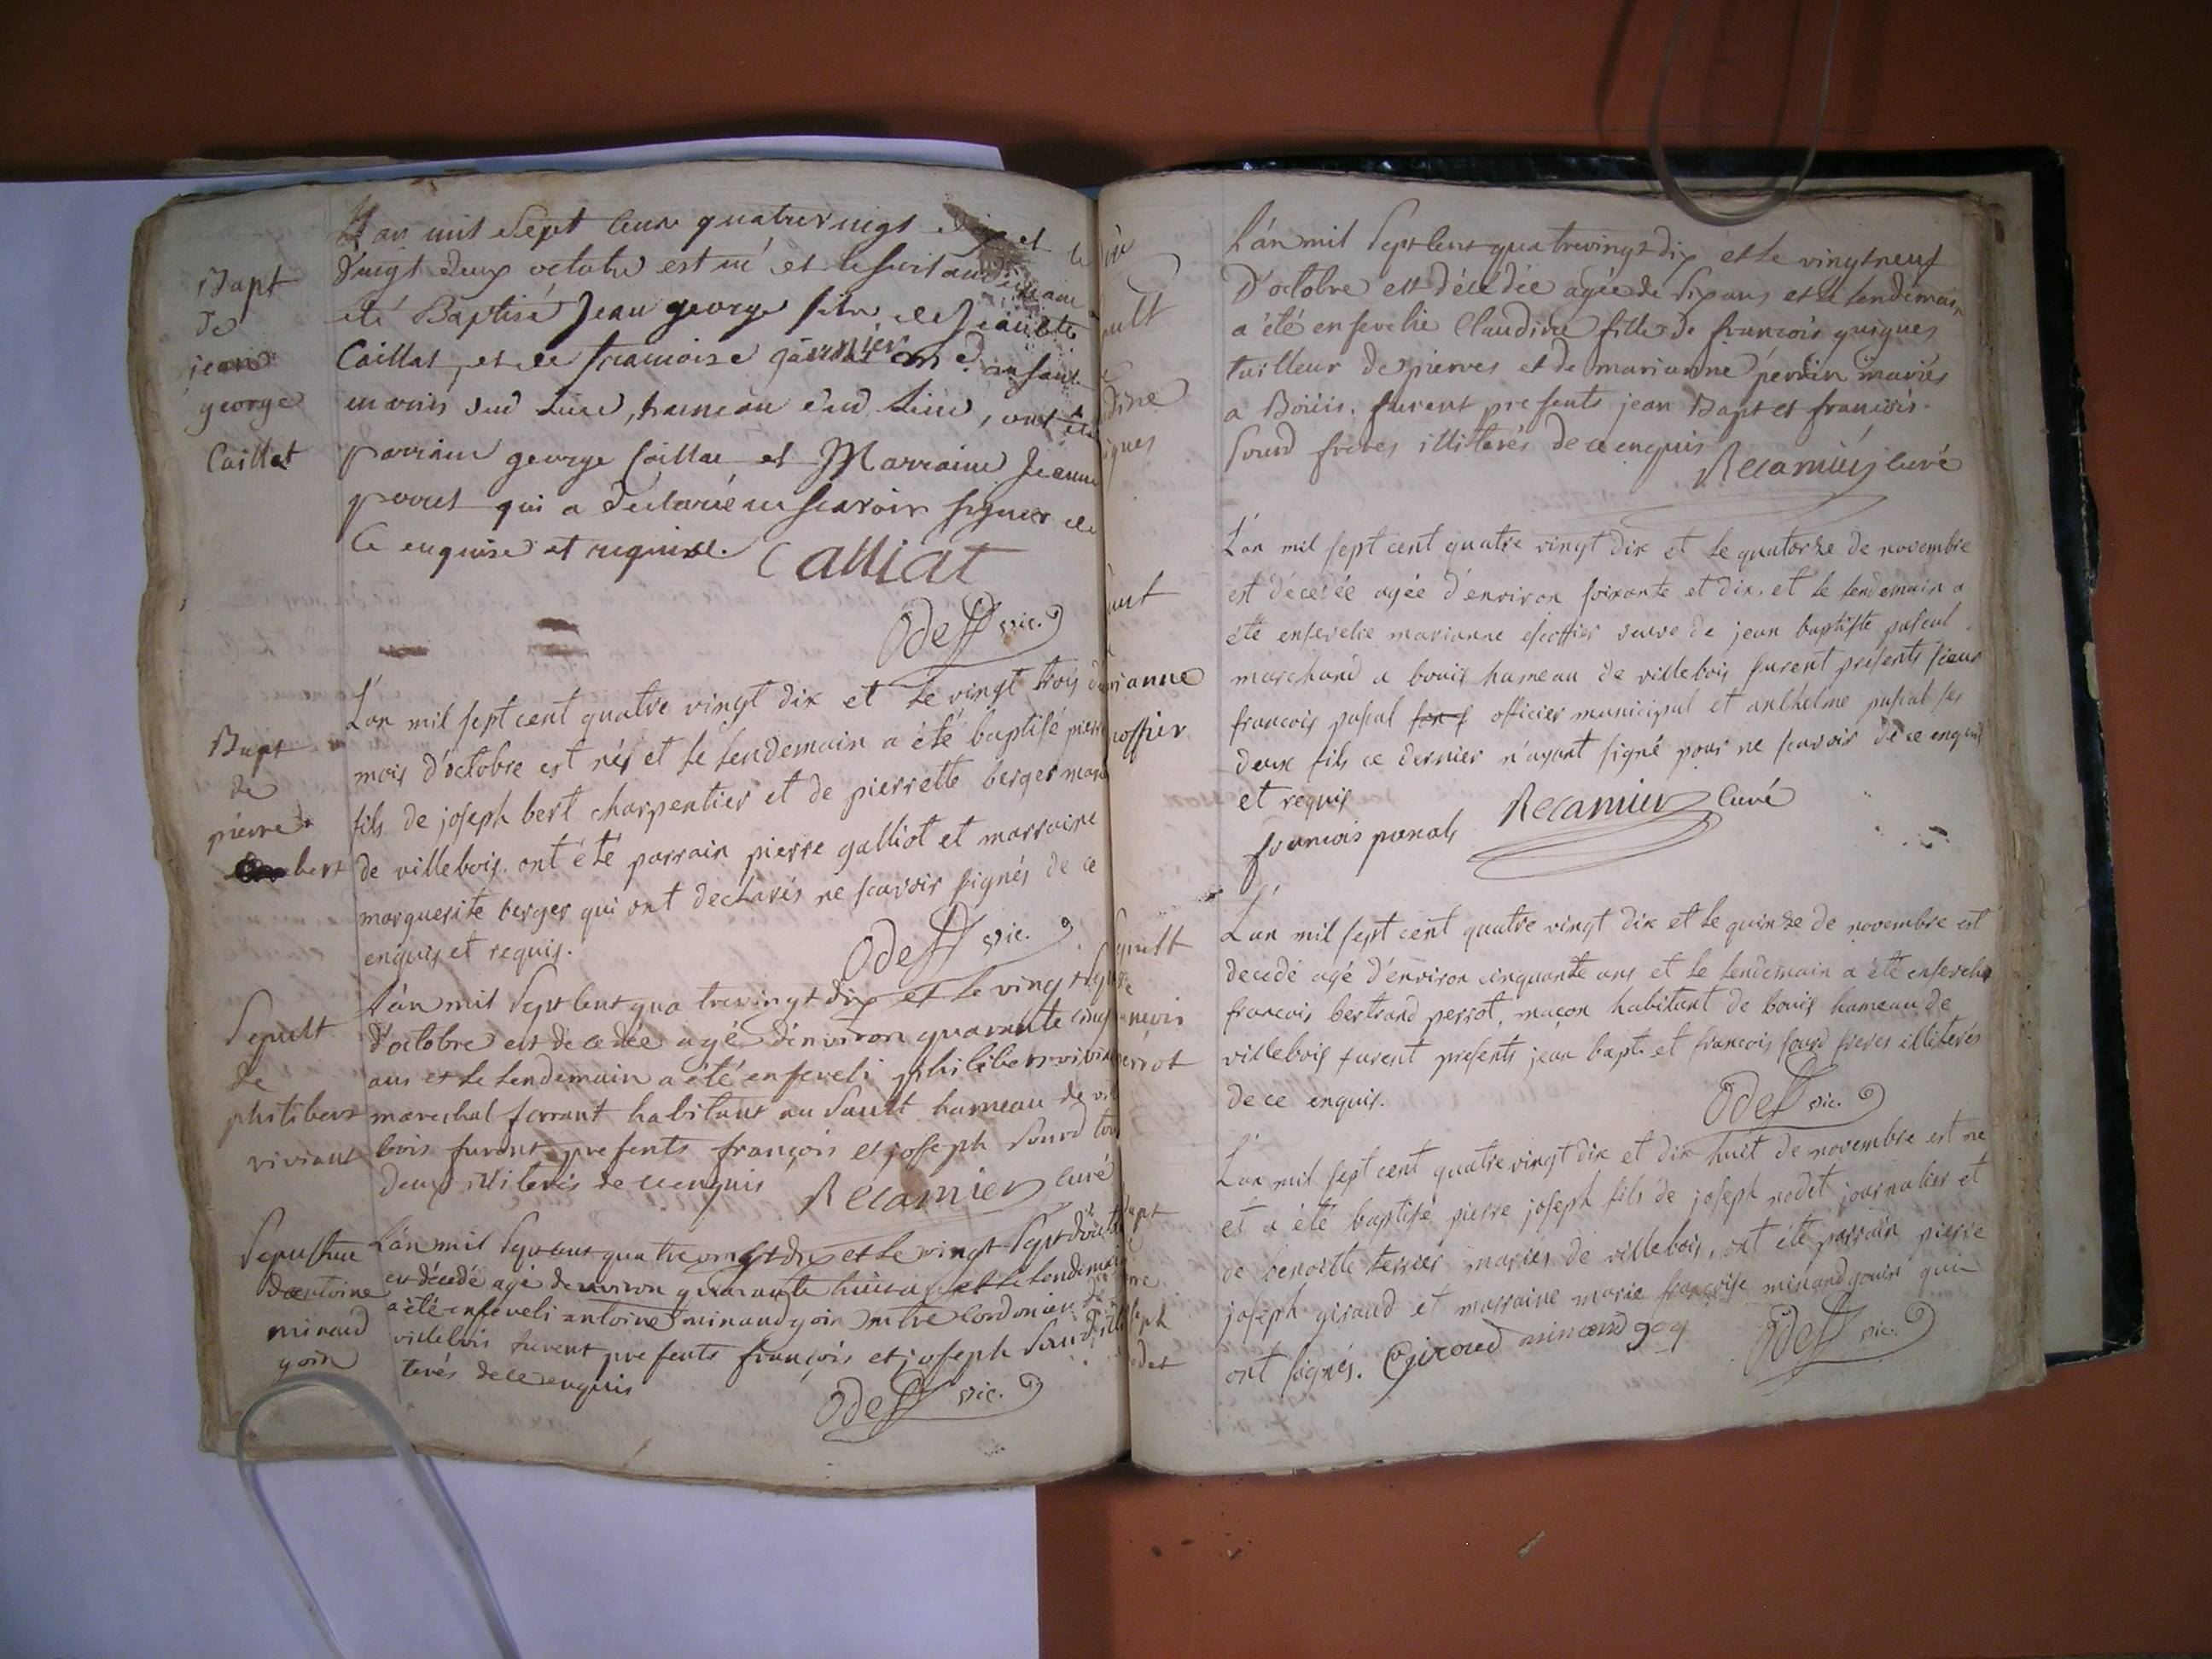 Bapt
de
jean
george
Caillat
L'an mil sept cent quatre vingt dix et le
vingt deux octobre est né et le
été Baptisé Jean george fils de
Caillat, et de francoise garnier
dud lieu, hameau dud lieu, ont été
parrain george Caillat et Marraine Jeanne
qui a déclaré ne scavoir signer de
Ce enquise et requise. Calliat
Odet vic.
Bapt
de
pierre
bert
L'an mil sept cent quatre vingt dix et le vingt trois du
mois d'octobre est nés et le lendemain a été baptisé pierre
fils de joseph bert charpentier et de pierrette berger mariés
de villebois. ont été parrain pierre galliot et marraine
marguerite berger qui ont declarés ne scavoir signés de ce
enquis et requis. Odet vic.
Sepult
de
philibert
viviant
L'an mil Sept Cent quatrevingt dix et le vingt
d'octobre est decedée agé d'environ quarante cinq
ans et le lendemain a été enseveli philibert
marechal ferrant habitant au Sault hameau de
bois furent presents françois et joseph Sourd tous
deux illiterés de ce enquis Récamier curé
Sepulture
d'antoine
minaud
goin
L'an mil Sept Cent quatre vingt dix et le vingt Sept
est décedé agé d'environ quarante huit ans et le lendemain
a été enseveli antoine minaud goin cordonier
villebois furent presents françois et joseph Sourd
terés de ce enquis
Odet vic.
L'an mil Sept Cent quatrevingt dix et le vingt neuf
D'octobre est décédée agée de six ans et le lendemain
a été ensevelie Claudine fille de francois guigues
tailleur de pierres et de marianne perrin mariés
a Boüis. furent presents jean Bapt et francois
Sourd freres illiterés de ce enquis
Récamier curé
anne
coffier
L'an mil sept cent quatre vingt dix et le quatorze de novembre
est décedée agée d'environ soixante et dix, et le lendemain a
été ensevelie marianne escoffier veuve de jean baptiste pascal
marchand a bouis hameau de villebois furent présents sieur
francois pascal officier municipal et anthelme pascal ses
deux fils ce dernier n'ayant signé pour ne scavoir de ce enquis
et requis Récamier Curé
francois pascal
L'an mil sept cent quatre vingt dix et le quinze de novembre est
decedé agé d'environ cinquante ans et le lendemain a été enseveli
francois bertrand perrot, maçon habitant de bouis hameau de
villebois furent presents jean bapt. et francois sourd freres illiterés
de ce enquis. Odet vic.
L'an mil sept cent quatre vingt dix et dix huit de novembre est né
et a été baptisé pierre joseph fils de joseph nodet journalier et
de benoitte terrier mariés de villebois, ont été parrain pierre
joseph giraud et marraine marie françoise minaud gouin qui
ont signés. Giroud minaud goy Odet vic.